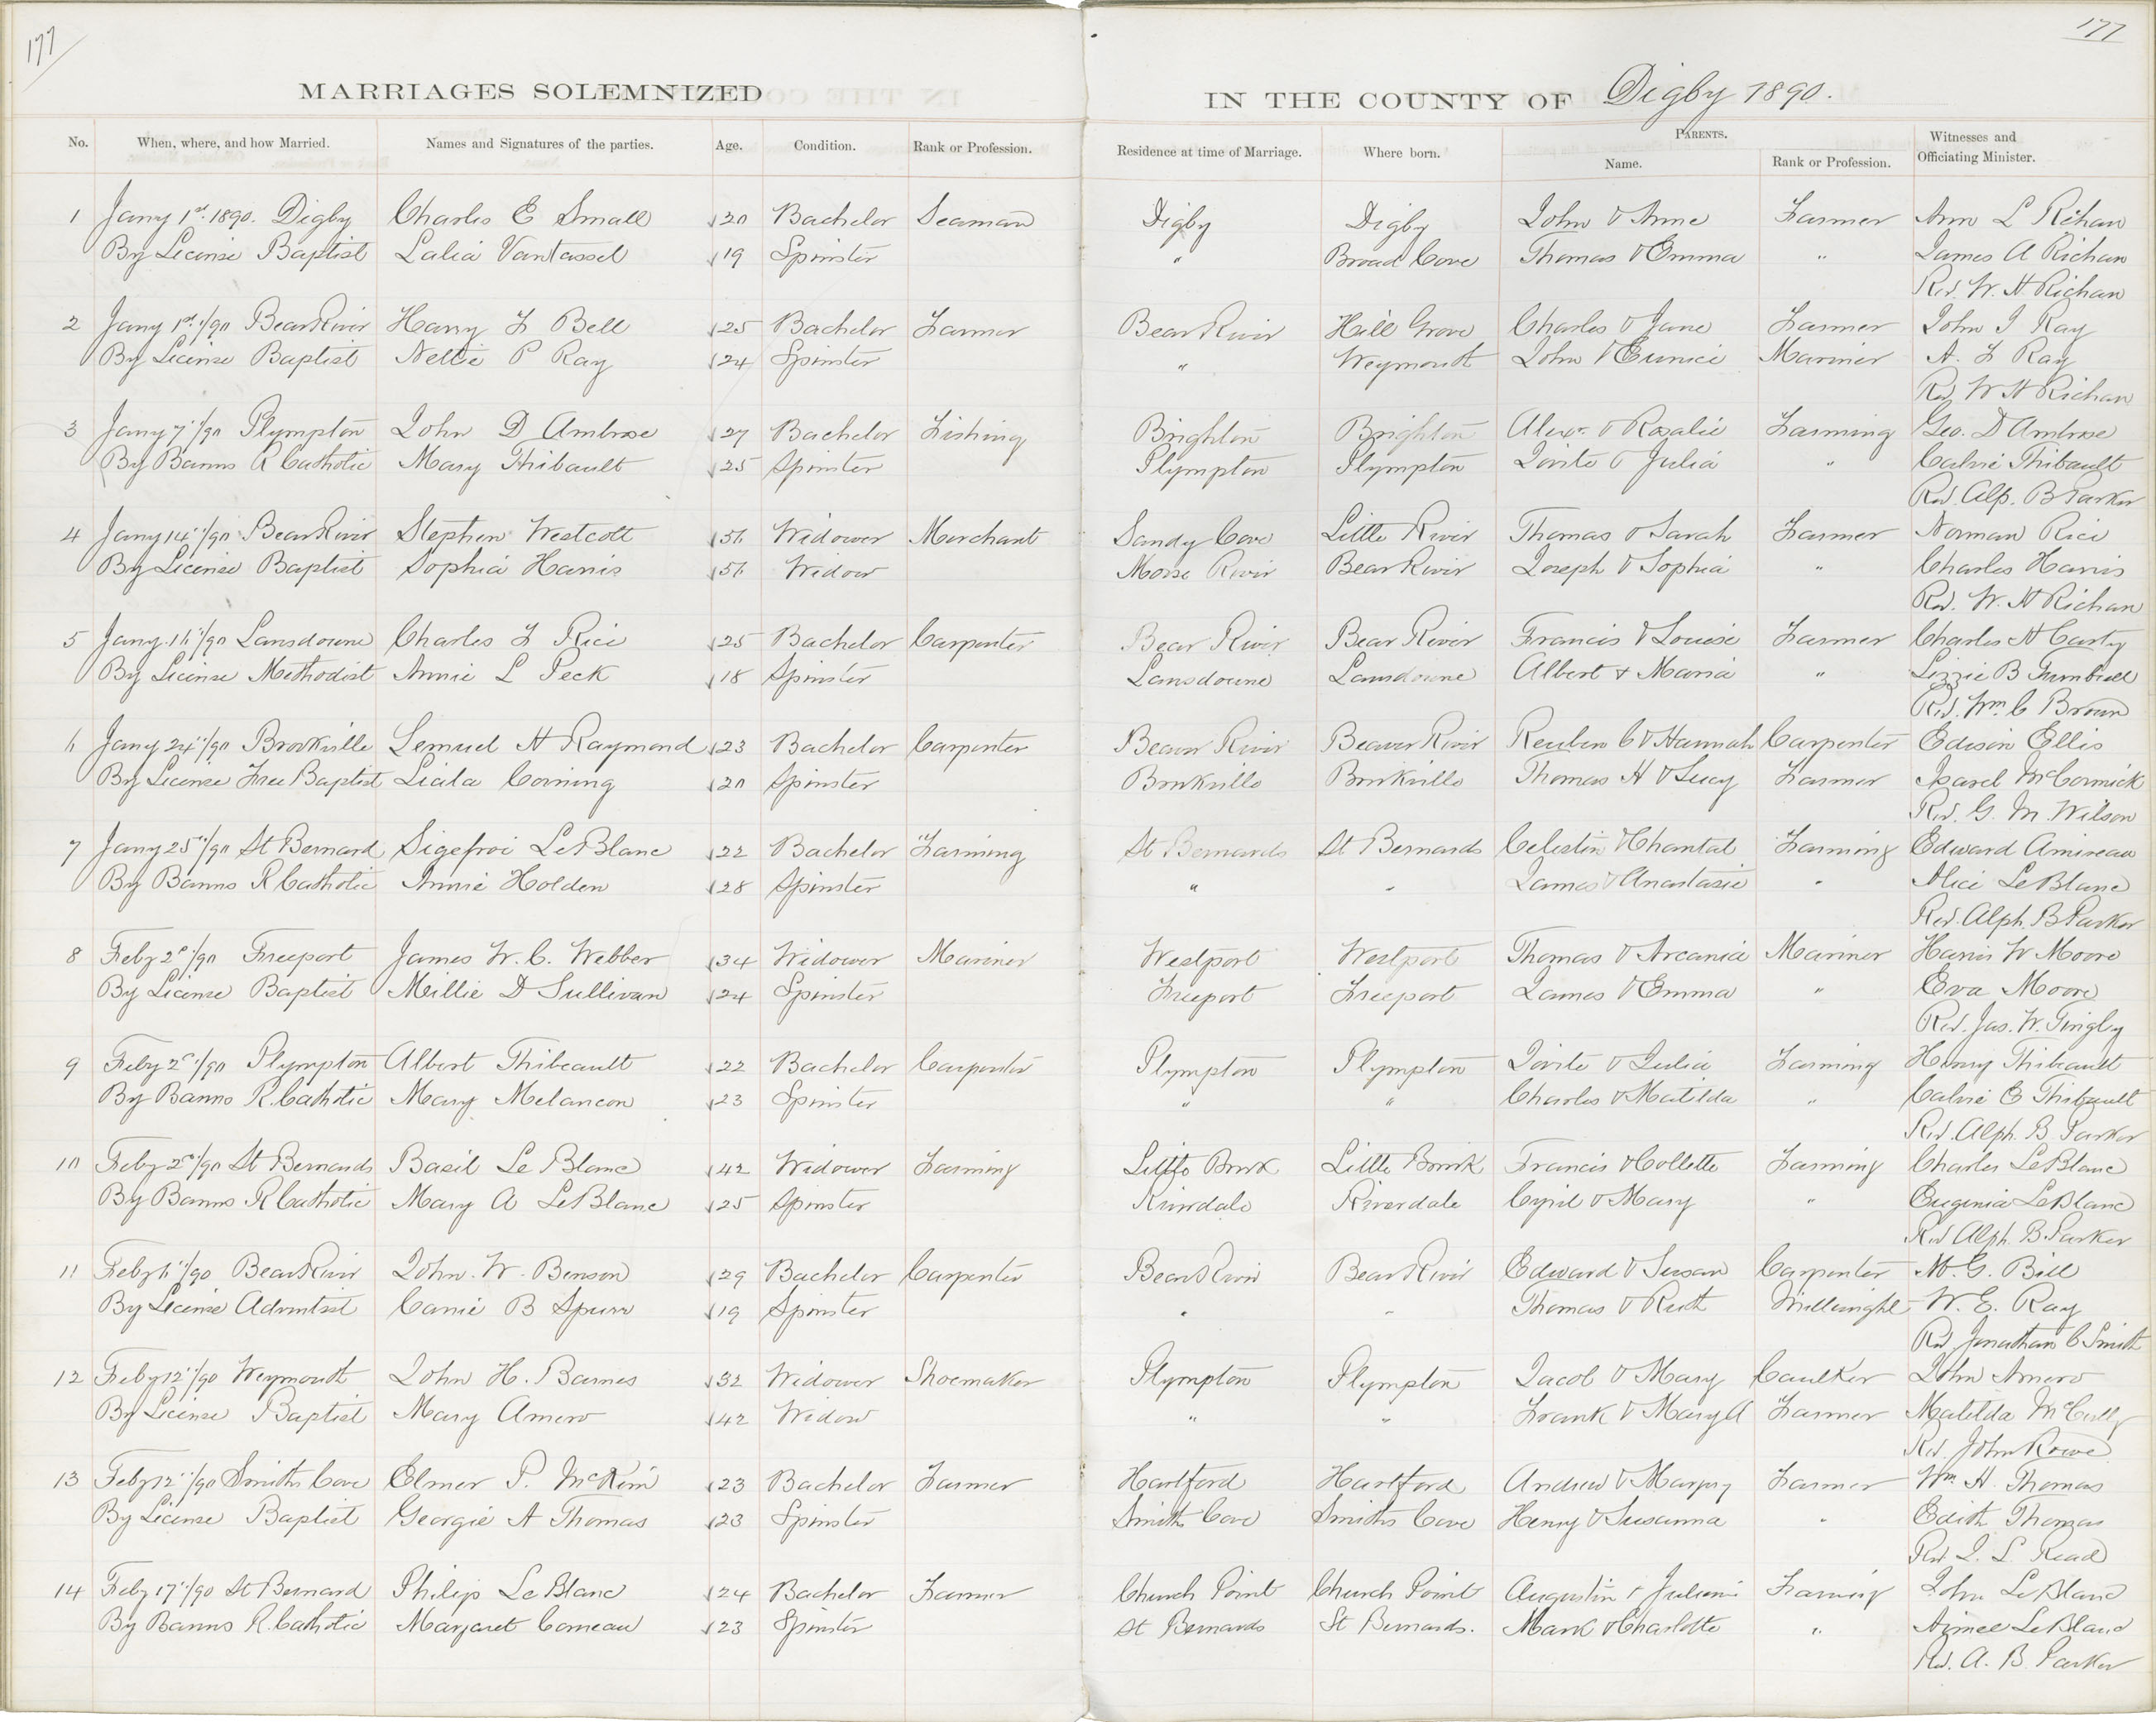 177
177
MARRIAGES SOLEMNIZED IN THE COUNTY OF Digby 1890.
No. When, where, and how Married. Names and Signatures of the parties. Age. Condition. Rank or Profession. Residence at time of Marriage. Where born. PARENTS. Name. Rank or Profession. Witnesses and Officiating Minister.
1 Jany 1st 1890. Digby Charles E Small 20 Bachelor Seaman Digby Digby John & Anne Farmer Ann L Richan
By License Baptist Lalia Vantassel 19 Spinster " Broad Cove Thomas & Emma " James A Richan
Rev. W. H Richan
2 Jany 1st/90 Bear River Harry F Bell 25 Bachelor Farmer Bear River Hill Grove Charles & Jane Farmer John I Ray
By License Baptist Nettie P Ray 24 Spinster " Weymouth John & Eunice Mariner A. F Ray
Rev W H Richan
3 Jany 7"/90 Plympton John D Ambrose 27 Bachelor Fishing Brighton Brighton Alexr. & Rosalie Farming Geo. D Ambrose
By Banns R Catholic Mary Thibault 25 Spinster Plympton Plympton Zoite & Julia " Calvie Thibault
Rev. Alp. B Parker
4 Jany 14"/90 Bear River Stephen Westcott 56 Widower Merchant Sandy Cove Little River Thomas & Sarah Farmer Norman Rice
By License Baptist Sophia Harris 56 Widow Morse River Bear River Joseph & Sophia " Charles Harris
Rev. W. H Richan
5 Jany. 16"/90 Lansdowne Charles F Rice 25 Bachelor Carpenter Bear River Bear River Francis & Louise Farmer Charles H Carty
By License Methodist Annie L Peck 18 Spinster Lansdowne Lansdowne Albert & Maria " Lizzie B
Rev. Wm. C Brown
6 Jany 24"/90 Brookville Lemuel H Raymond 23 Bachelor Carpenter Beaver River Beaver River Reuben C & Hannah Carpenter Edison Ellis
By License Free Baptist Liala Corning 20 Spinster Brookville Brookville Thomas H & Lucy Farmer Isarel McCormick
Rev. G. M. Wilson
7 Jany 25"/90 St Bernard Sigefroi LeBlanc 22 Bachelor Farming St Bernards St Bernards Celestin & Chantal Farming Edward Amireau
By Banns R Catholic Annie Holden 28 Spinster " " James & Anastasie " Alice LeBlanc
Rev. Alph. B Parker
8 Feby 2d/90 Freeport James W. C. Webber 34 Widower Mariner Westport Westport Thomas & Arcania Mariner Harris W Moore
By License Baptist Millie D Sullivan 24 Spinster Freeport Freeport James & Emma " Eva Moore
Rev. Jas. W. Tingley
9 Feby 2d/90 Plympton Albert Thibeault 22 Bachelor Carpenter Plympton Plympton Zoite & Julia Farming Henry Thibeault
By Banns R. Catholic Mary Melancon 23 Spinster " " Charles & Matilda " Calvie E Thibault
Rev. Alph. B Parker
10 Feby 2d/90 St Bernards Basil Le Blanc 42 Widower Farming Little Brook Little Brook Francis & Collette Farming Charles LeBlanc
By Banns R Catholic Mary A LeBlanc 25 Spinster Riverdale Riverdale Cyril & Mary " Eugenia LeBlanc
Rev Alph. B. Parker
11 Feby 6"/90 Bear River John. W. Benson 29 Bachelor Carpenter Bear River Bear River Edward & Susan Carpenter M. G. Bill
By License Adventist Carrie B Spurr 19 Spinster " " Thomas & Ruth Millwright W. E. Ray
Rev Jonathan C Smith
12 Feby 12"/90 Weymouth John H. Barnes 32 Widower Shoemaker Plympton Plympton Jacob & Mary Caulker John Amero
By License Baptist Mary Amero 42 Widow " " Frank & Mary A Farmer Matilda McCully
Rev. John Rowe
13 Feby 12"/90 Smiths Cove Elmer P. McKim 23 Bachelor Farmer Hartford Hartford Andrew & Farmer Wm. H. Thomas
By License Baptist Georgie A Thomas 23 Spinster Smiths Cove Smiths Cove Henry & Susanna " Edith Thomas
Rev J. L. Read
14 Feby 17"/90 St Bernard Philip LeBlanc 24 Bachelor Farmer Church Point Church Point Augustin & Julienne Farming John LeBlanc
By Banns R. Catholic Margaret Comeau 23 Spinster St Bernards St Bernards. Mark & Charlotte " Aimee LeBlanc
Rev. A. B. Parker